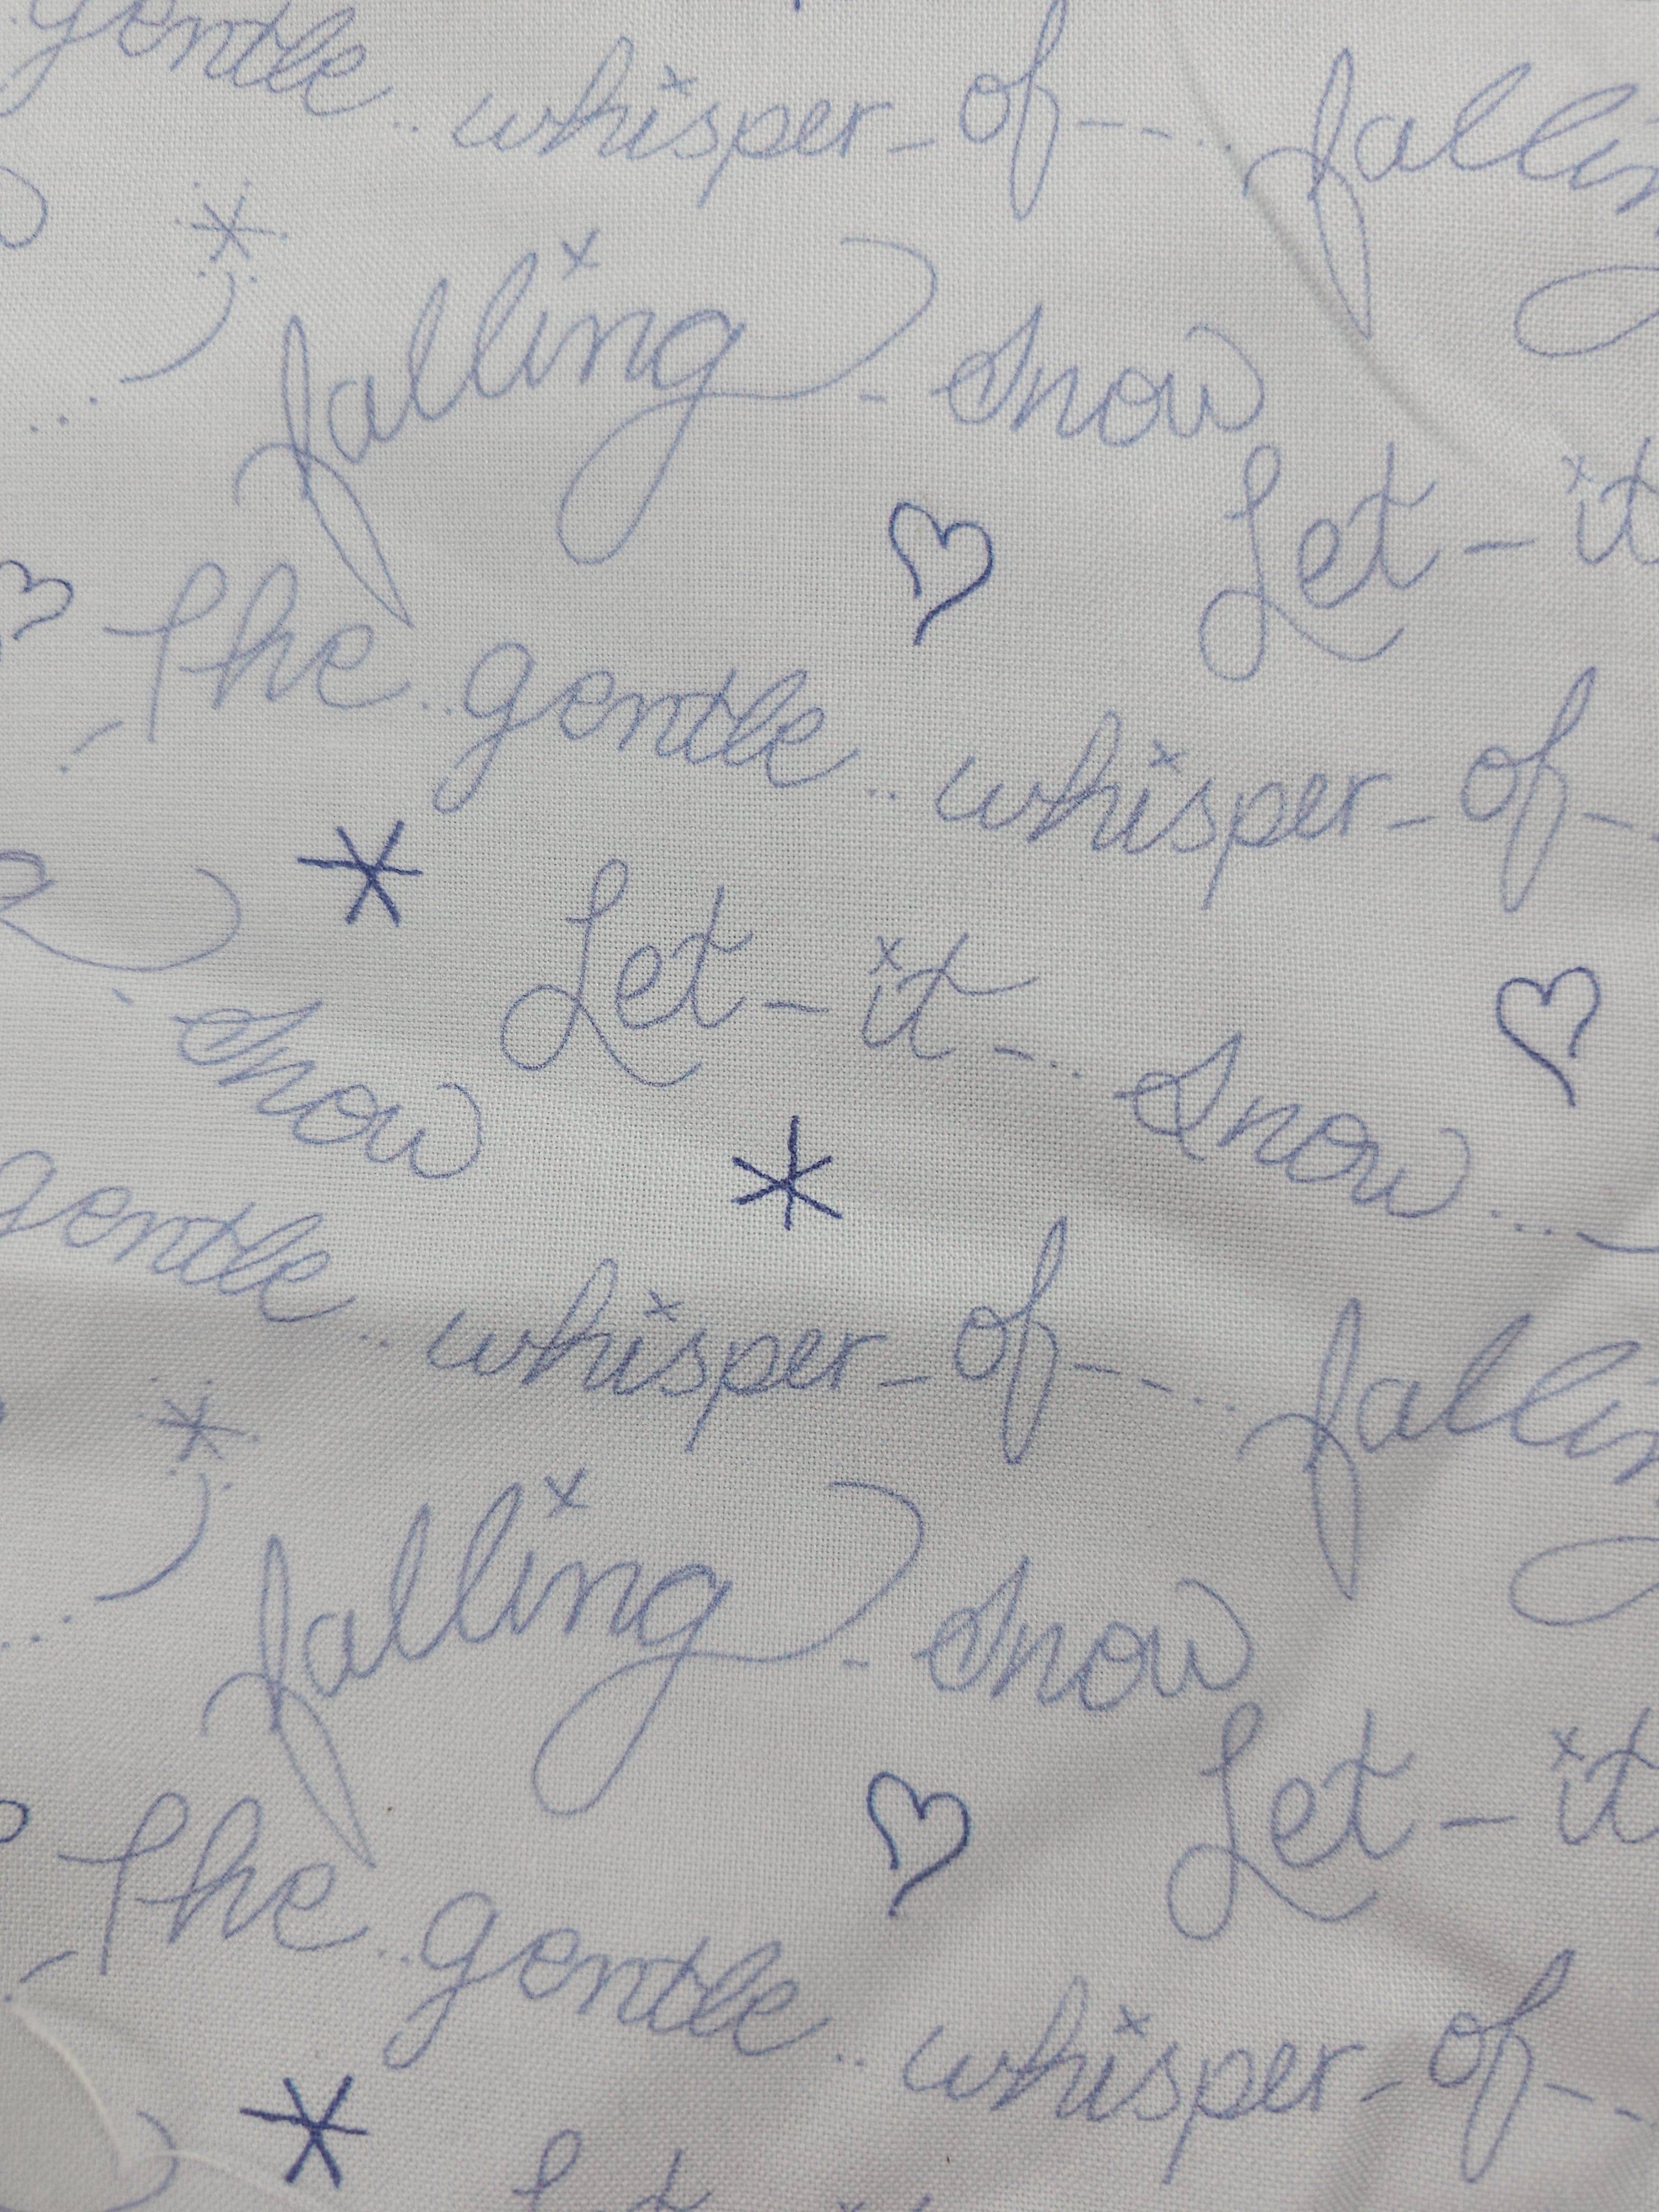 gentle.. whisper - of - - ... falling
falling - snow
Let - it
The.. gentle.. whisper - of -
Let - it - ... snow ....
snow
gentle.. whisper - of - - ... falling
falling - snow
Let - it
The.. gentle.. whisper - of - -
Let